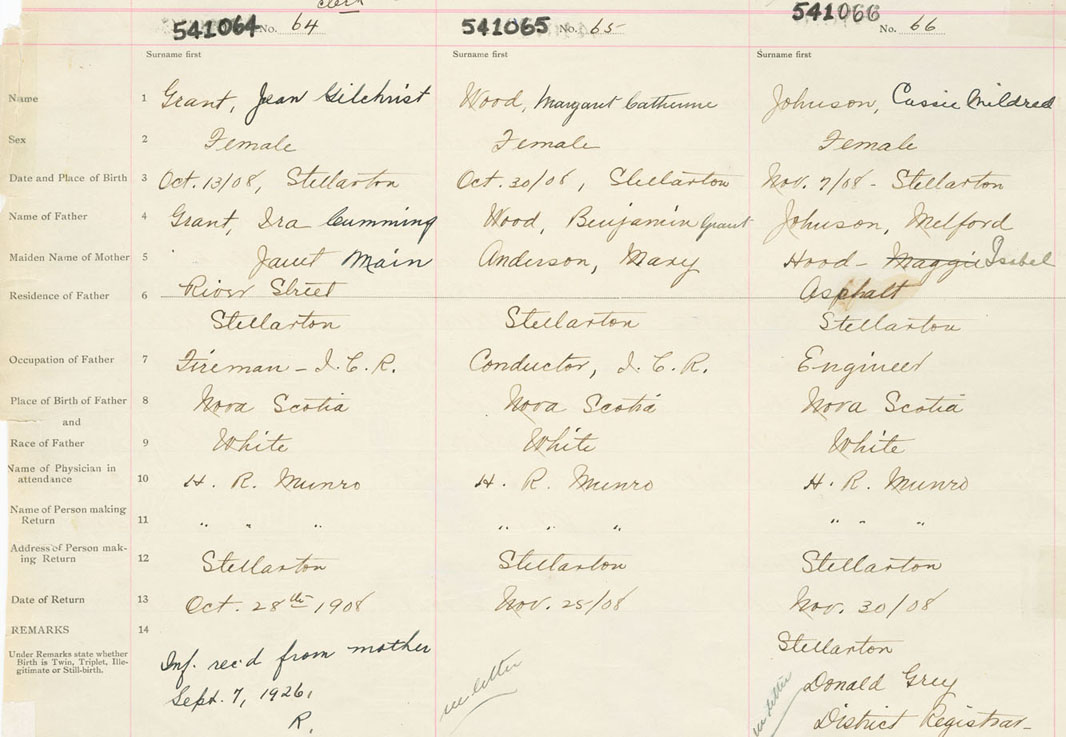 clerk
541064 No. 64 541065 No. 65 541066 No. 66
Surname first Surname first Surname first
Name 1 Grant, Jean Gilchrist Wood, Margaret Catherine Johnson, Cassie Mildred
Sex 2 Female Female Female
Date and Place of Birth 3 Oct. 13/08, Stellarton Oct. 30/08, Stellarton Nov. 7/08 - Stellarton
Name of Father 4 Grant, Ira Cumming Wood, Benjamin Grant Johnson, Melford
Maiden Name of Mother 5 Janet Main Anderson, Mary Hood - Maggie Isabel
Residence of Father 6 River Street Asphalt
Stellarton Stellarton Stellarton
Occupation of Father 7 Fireman - I.C.R. Conductor, I.C.R. Engineer
Place of Birth of Father 8 Nova Scotia Nova Scotia Nova Scotia
and
Race of Father 9 White White White
Name of Physician in
attendance 10 H. R. Munro H. R. Munro H. R. Munro
Name of Person making
Return 11 " " " " " " " " "
Address of Person mak-
ing Return 12 Stellarton Stellarton Stellarton
Date of Return 13 Oct. 28th 1908 Nov. 25/08 Nov. 30/08
REMARKS 14 Stellarton
Under Remarks state whether
Birth is Twin, Triplet, Ille-
gitimate or Still-birth.
Inf. rec'd from mother
Sept. 7, 1926.
R.
letter
letter
Donald Grey
District Registrar